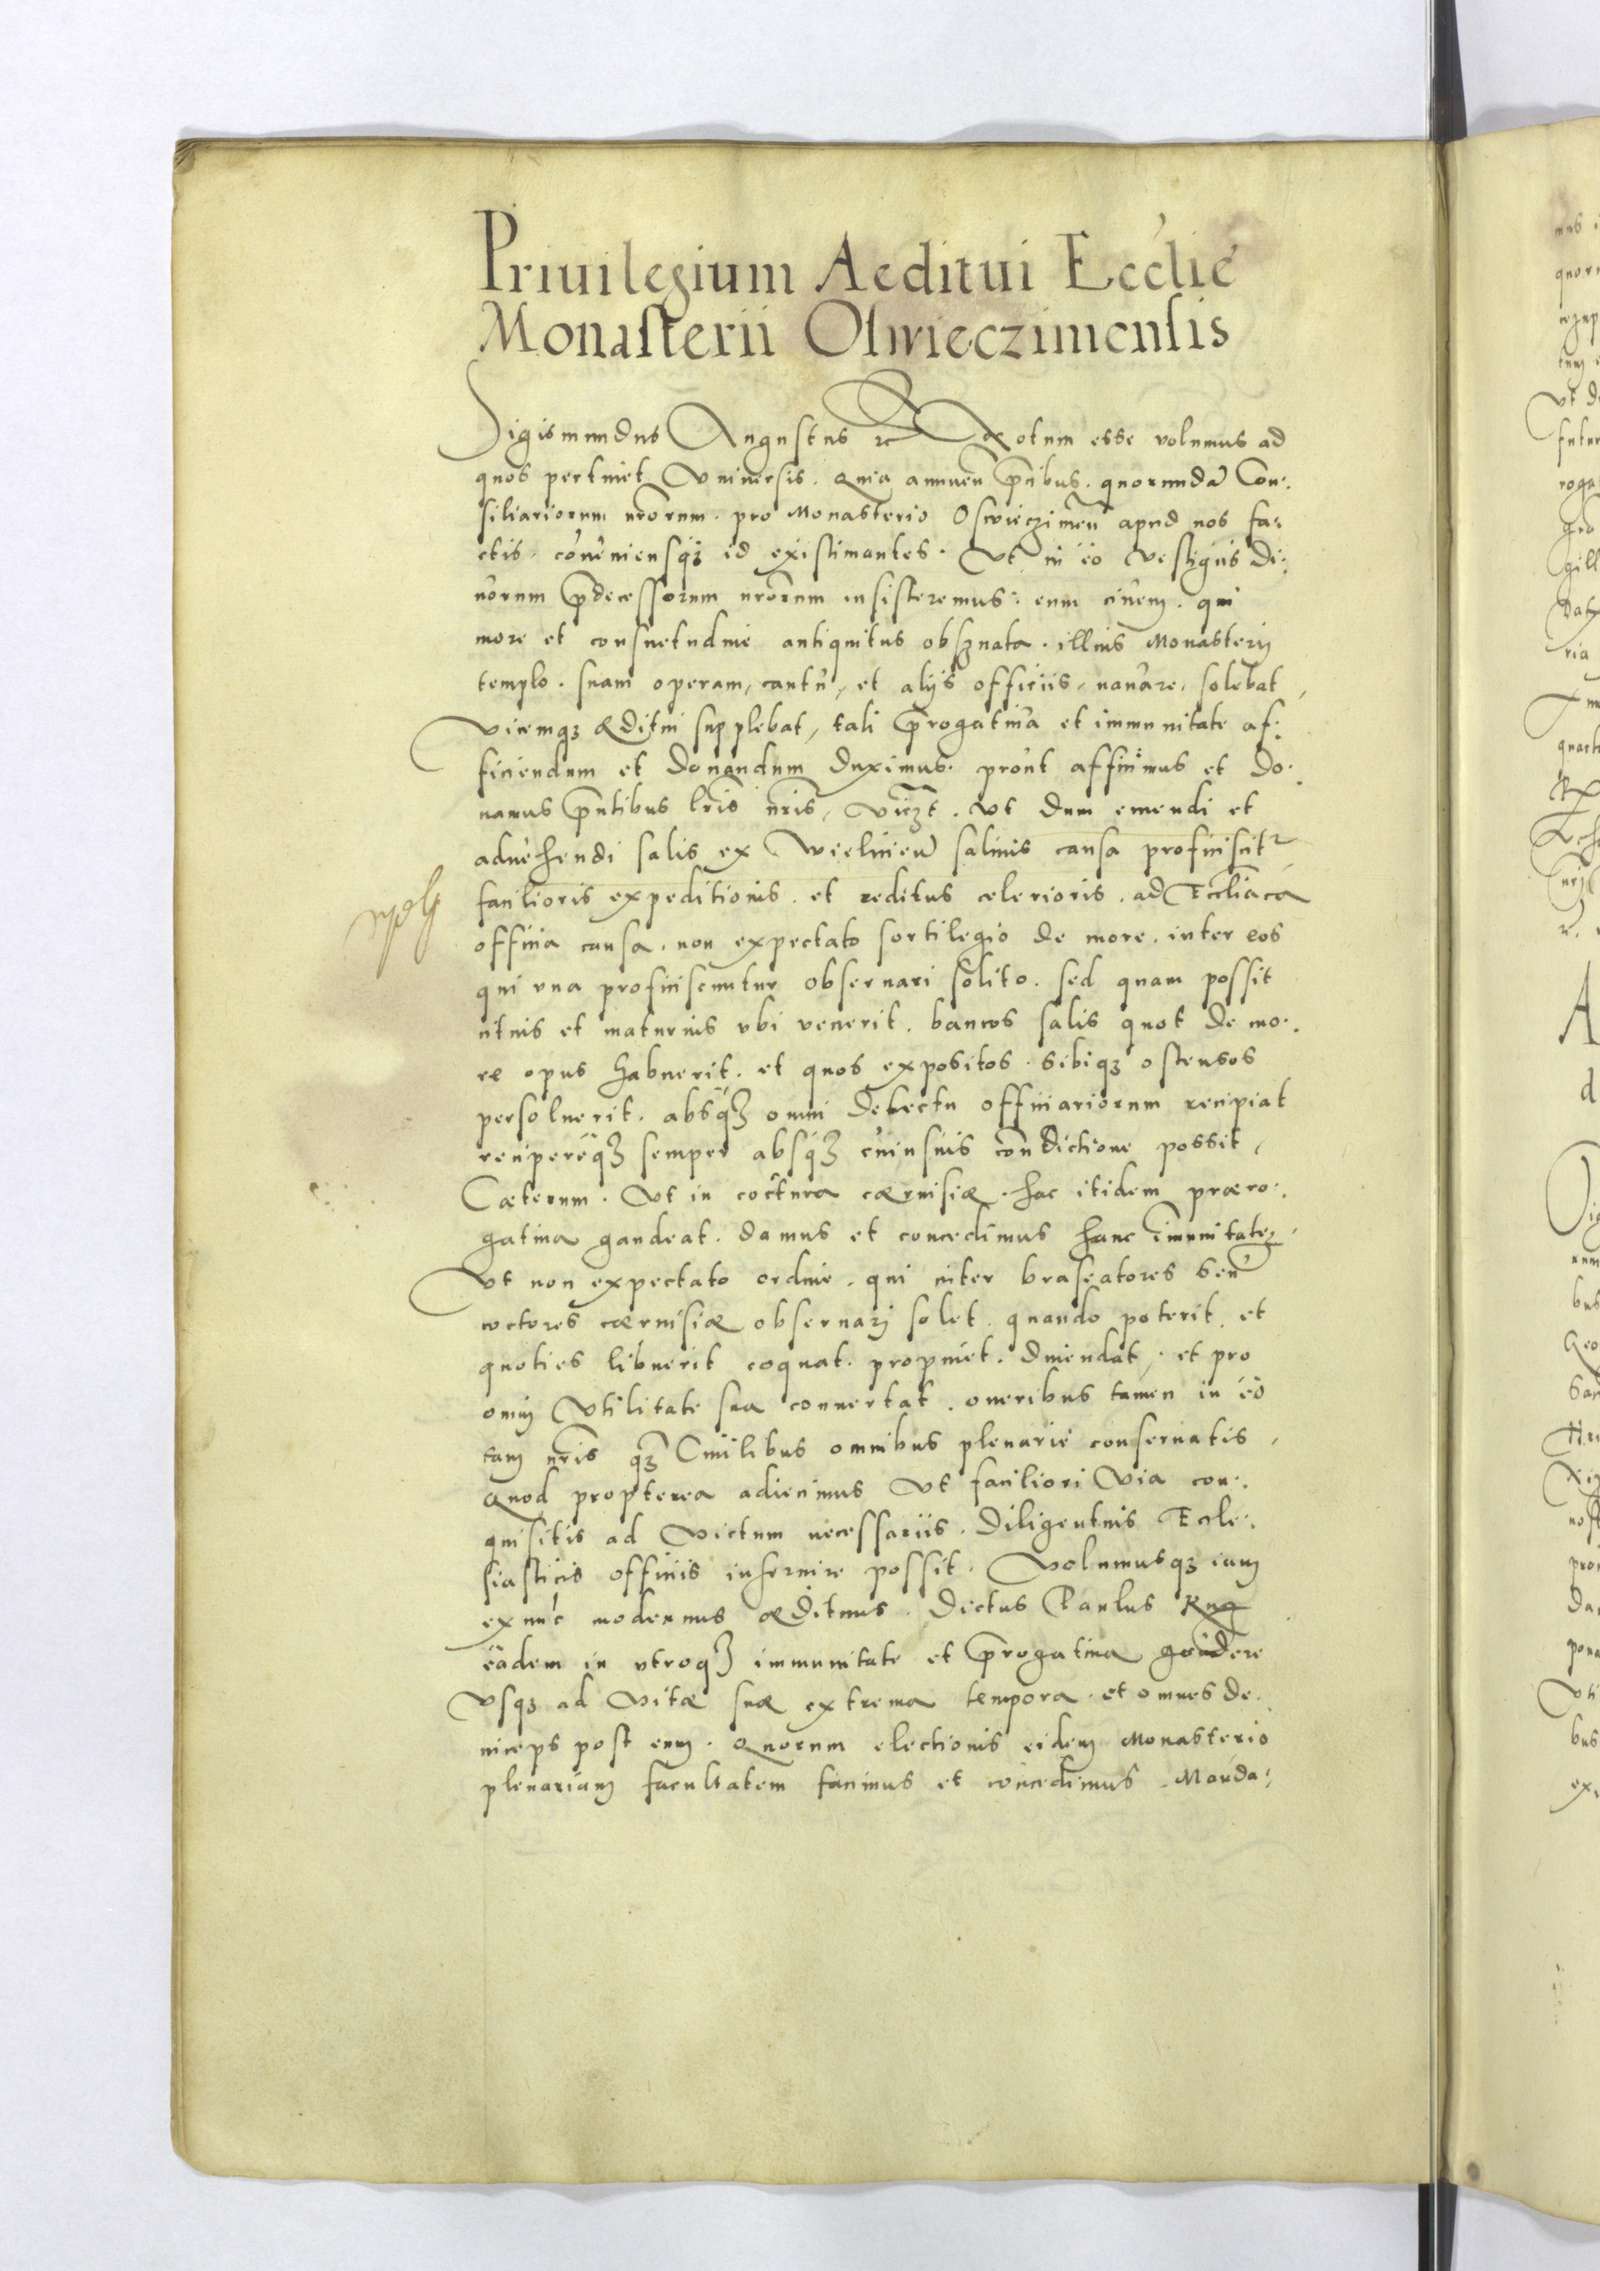 Priuilegium Aeditui Ecclie
Monasterii Oswieczimensis
Sigismundus Augustus &c Notum esse volumus ad
quos pertinet Vniuersis. Quia annuen pcibus. quorundā Con:
siliariorum nrorum. pro Monasterio Oswieczimen apud nos fa:
ctis. cōueniensq; id existimantes. Vt in eo vestigiis Di:
uorum pdecessorum nrorum insisteremus: eum ciuem. qui
more et consuetudine antiquitus obseruata. illius Monasterij
templo. suam operam, cantu, et alijs officiis, nauare, solebat,
vicemq; æditui supplebat, tali progatiua et immunitate af:
ficiendum et donandum duximus. prout afficimus et do:
namus pntibus lris nris, viczt. Vt dum emendi et
aduehendi salis ex Wielicien salinis causa proficiscitr
facilioris expeditionis. et reditus celerioris. ad Eccliaca
officia causa. non expectato sortilegio de more. inter eos
qui vna proficiscuntur obseruari solito. sed quam possit
citius et maturius vbi venerit. bancos salis quot de mo:
re opus habuerit. et quos expositos. sibiq; ostensos
persoluerit. absq; omni delectu officiariorum recipiat
recipereq; semper absq; cuiusuis condictione possit,
Cæterum. Vt in coctura cæruisiæ. hac itidem præro:
gatiua gaudeat. damus et concedimus hanc imunitatē.
Vt non expectato ordine. qui inter braseatores seu
coctores cæruisiæ obseruarj solet. quando poterit. et
quoties libuerit coquat. propinet. diuendat, et pro
omnj Vtilitate sua conuertat. oneribus tamen in eo
tam nris q; Ciuilibus omnibus plenarie conseruatis.
Quod propterea adiecimus Vt faciliori Via con:
quisitis ad victum necessariis. Diligentius Eccle:
siasticis officiis inseruire possit. Volumusq; iam
ex nūc modernus ædituus. dictus Paulus
eadem in vtroq; immunitate et progatiua gaudere
vsq; ad vitæ suæ extrema tempora. et omnes de:
inceps post eum. Quorum electionis eidem Monasterio
plenariam facultatem facimus et concedimus. Manda: